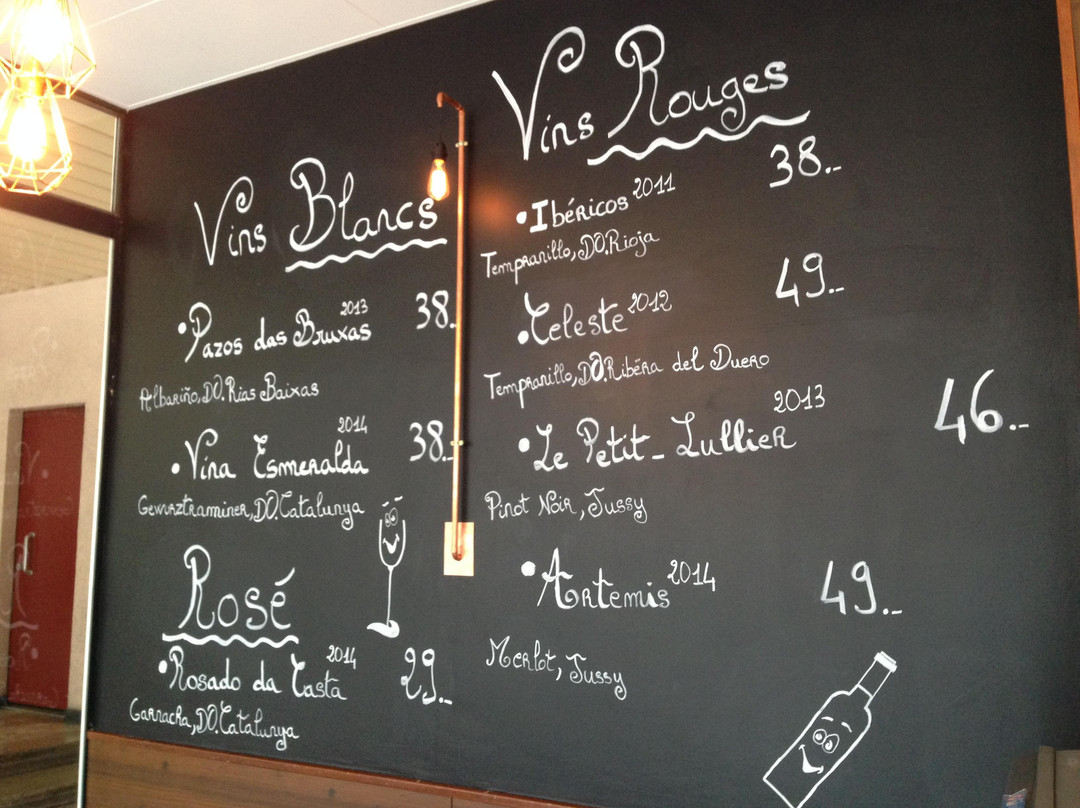 Vins Blancs
• Pazos das Bruxas 2013 38.-
Albariño, DO. Rias Baixas
• Vina Esmeralda 2014 38.-
Gewurztraminer, DO. Catalunya
Rosé
• Rosado da Casta 2014 29.-
Garnacha, DO. Catalunya
Vins Rouges
• Ibéricos 2011 38.-
Tempranillo, DO. Rioja
• Celeste 2012 49.-
Tempranillo, DO. Ribéra del Duero
• Le Petit-Lullier 2013 46.-
Pinot Noir, Jussy
• Artemis 2014 49.-
Merlot, Jussy